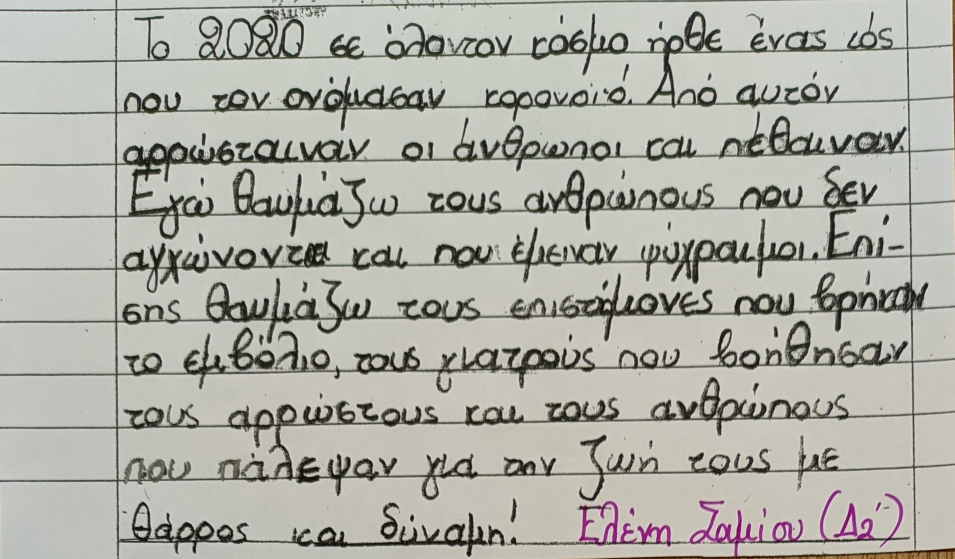 Το 2020 σε όλοντον κόσμο ήρθε ένας ιός
που τον ονόμασαν κορονοϊό. Από αυτόν
αρρώσταιναν οι άνθρωποι και πέθαιναν.
Εγώ θαυμάζω τους ανθρώπους που δεν
αγχώνονται και που έμειναν ψύχραιμοι. Επί-
σης θαυμάζω τους επιστήμονες που βρήκαν
το εμβόλιο, τους γιατρούς που βοήθησαν
τους αρρώστους και τους ανθρώπους
που πάλεψαν για την ζωή τους με
θάρρος και δύναμη! Ελένη Σαμίου (Δ2')